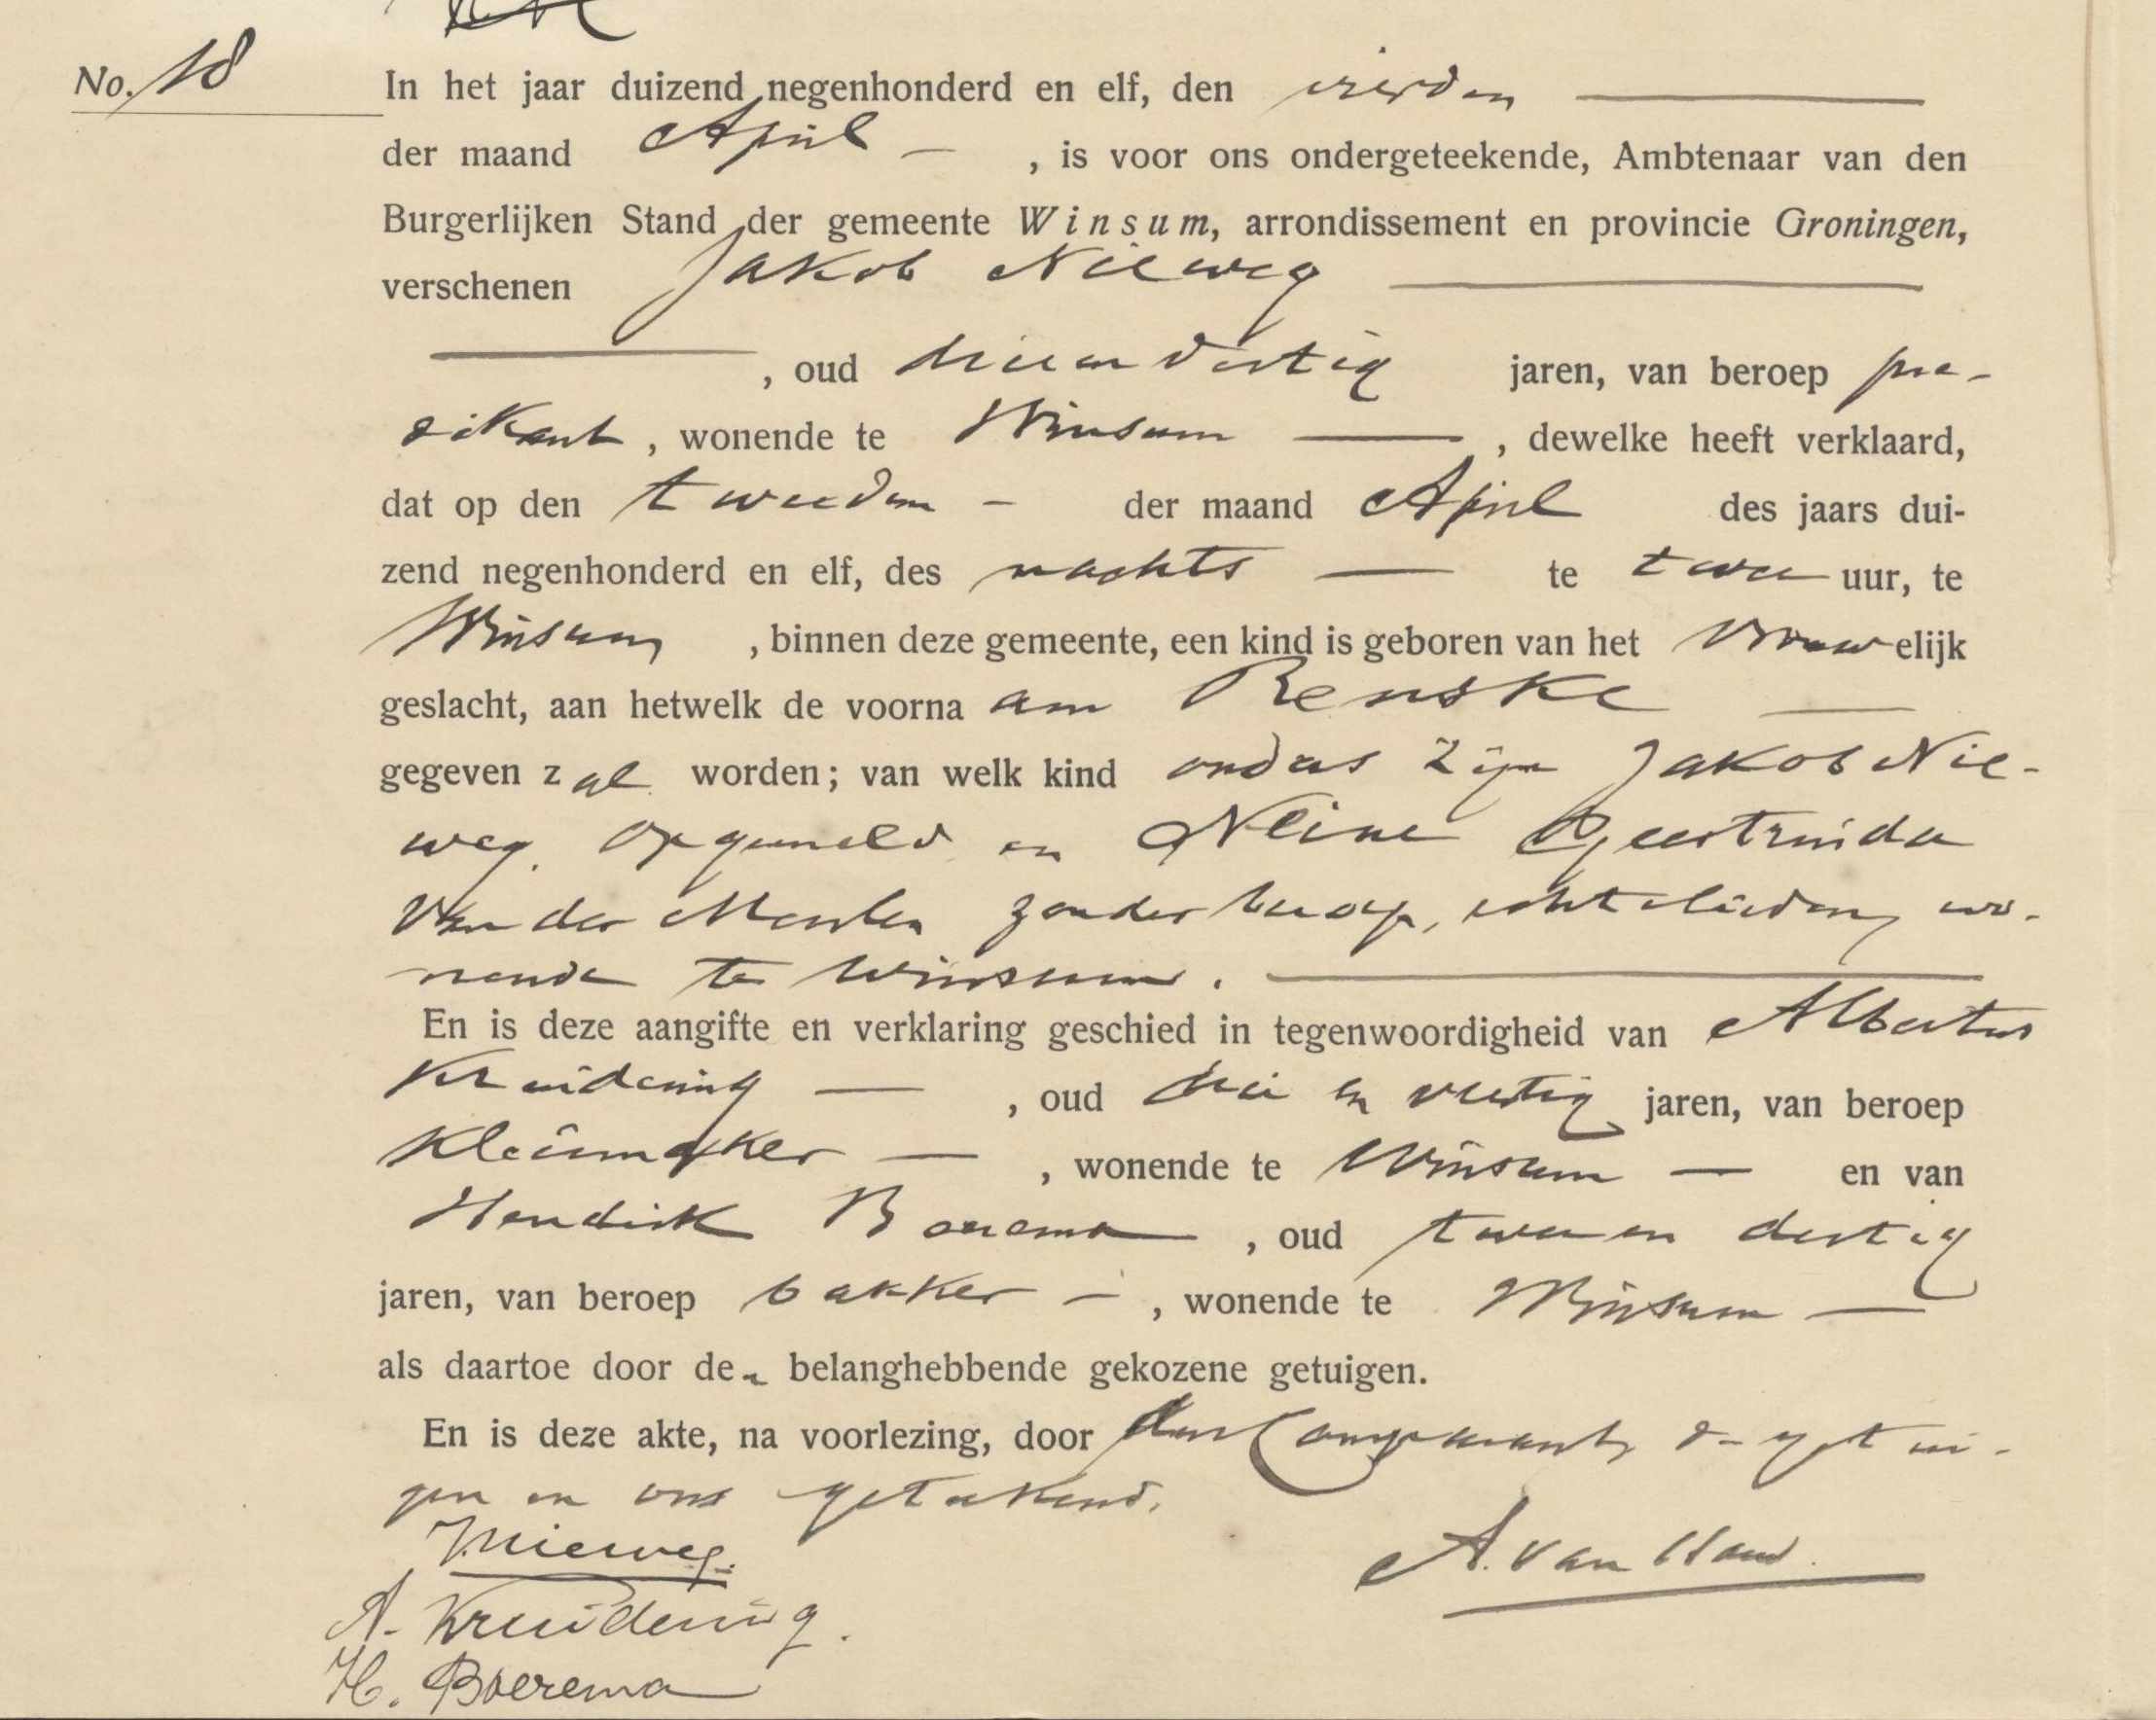 No. 18
In het jaar duizend negenhonderd en elf, den vierden
der maand April, is voor ons ondergeteekende, Ambtenaar van den
Burgerlijken Stand der gemeente Winsum, arrondissement en provincie Groningen,
verschenen Jakob Nieweg
, oud drie en dertig jaren, van beroep pre-
dikant, wonende te Winsum, dewelke heeft verklaard,
dat op den tweeden der maand April des jaars dui-
zend negenhonderd en elf, des nachts te twee uur, te
Winsum, binnen deze gemeente, een kind is geboren van het vrouwelijk
geslacht, aan hetwelk de voornaam Renske
gegeven zal worden; van welk kind ouders zijn Jakob Nie-
weg opgemeld en Geertruida
van der Meulen zonder beroep, echtelieden, wo-
nende te Winsum.
En is deze aangifte en verklaring geschied in tegenwoordigheid van Albertus
Kruidering, oud drie en veertig jaren, van beroep
kleermaker, wonende te Winsum en van
Hendrik Boerema, oud twee en dertig
jaren, van beroep bakker, wonende te Winsum
als daartoe door den belanghebbende gekozene getuigen.
En is deze akte, na voorlezing, door den comparant, de getui-
gen en ons geteekend.
J Nieweg.
A. van
A. Kruidering.
H. Boerema